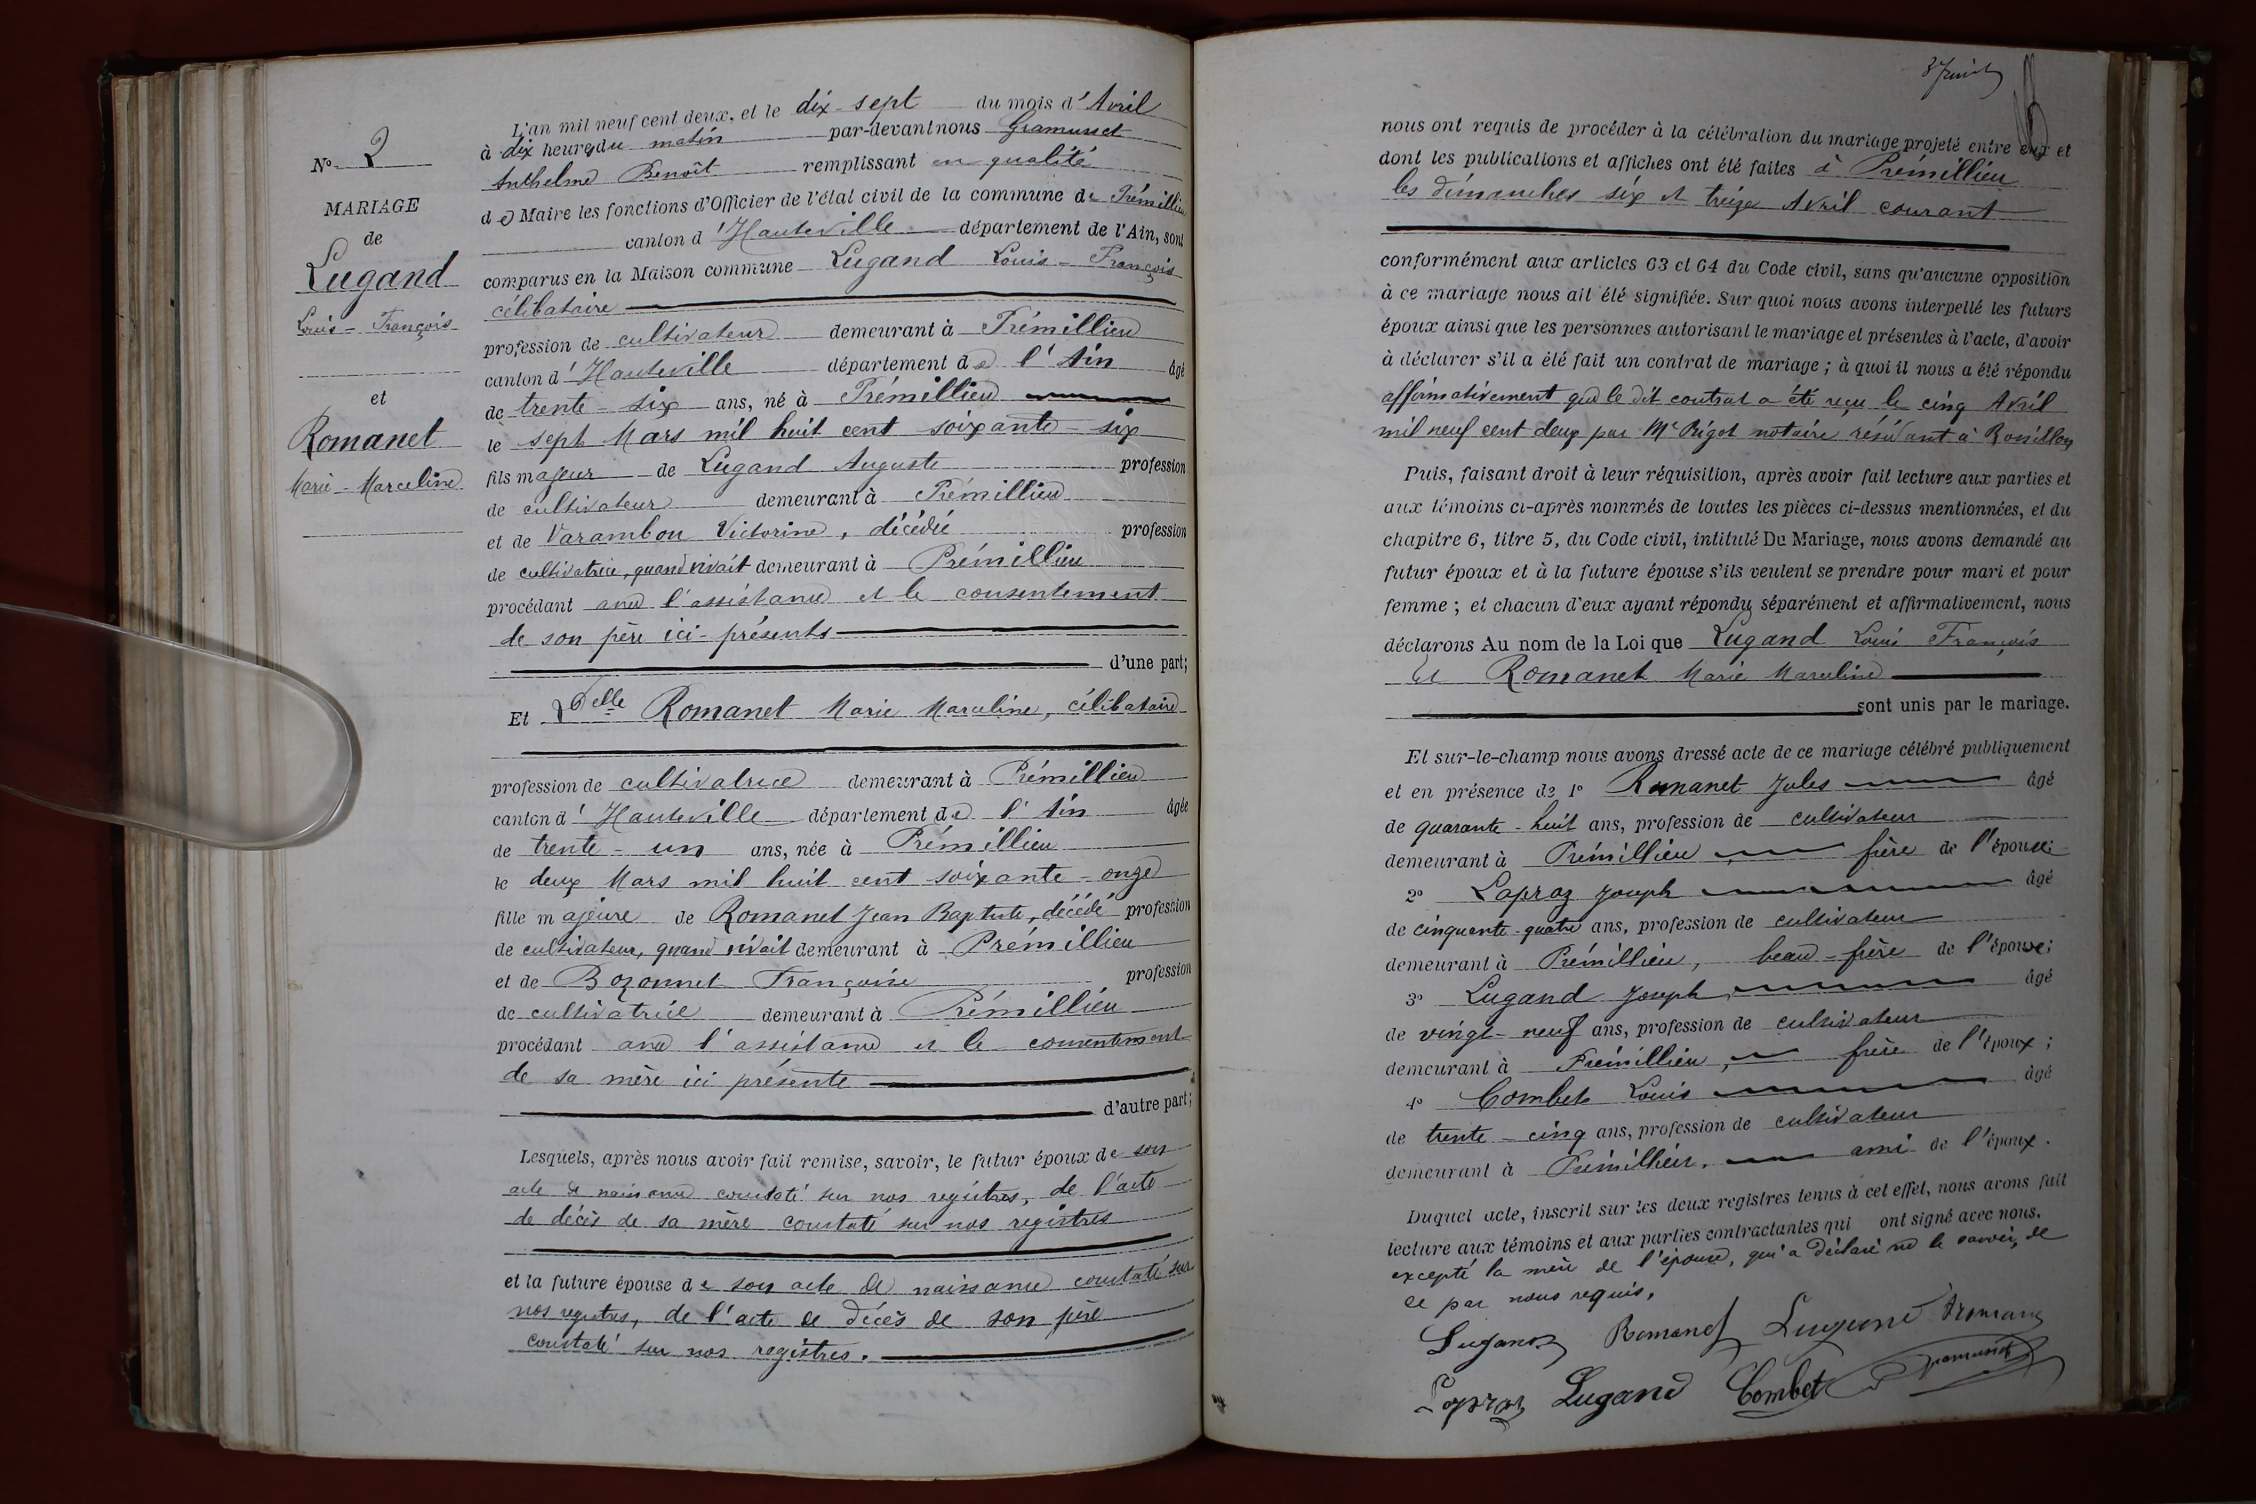 N° 2
MARIAGE
de
Lugand
Louis-François
et
Romanet
Marie-Marceline
L'an mil neuf cent deux, et le dix-sept du mois d'Avril
à dix heures du matin par-devant nous Gramusset
Anthelme Benoît remplissant en qualité
de Maire les fonctions d'Officier de l'état civil de la commune de Prémillieu
canton d'Hauteville département de l'Ain, sont
comparus en la Maison commune Lugand Louis-François
célibataire
profession de cultivateur demeurant à Prémillieu
canton d'Hauteville département de l'Ain âgé
de trente-six ans, né à Prémillieu
le sept Mars mil huit cent soixante-six
fils majeur de Lugand Auguste profession
de cultivateur demeurant à Prémillieu
et de Varambon Victorine, décédée profession
de cultivatrice, quand vivait demeurant à Prémillieu
procédant avec l'assistance et le consentement
de son père ici-présents
d'une part;
Et Delle Romanet Marie Marceline, célibataire
profession de cultivatrice demeurant à Prémillieu
canton d'Hauteville département de l'Ain âgée
de trente-un ans, née à Prémillieu
le deux Mars mil huit cent soixante-onze
fille majeure de Romanet Jean Baptiste, décédé profession
de cultivateur, quand vivait demeurant à Prémillieu
et de Bozonnet Françoise profession
de cultivatrice demeurant à Prémillieu
procédant avec l'assistance et le consentement
de sa mère ici présente
d'autre part;
Lesquels, après nous avoir fait remise, savoir, le futur époux de son
acte de naissance constaté sur nos registres, de l'acte
de décès de sa mère constaté sur nos registres
et la future épouse de son acte de naissance constaté sur
nos registres, de l'acte de décès de son père
constaté sur nos registres.
nous ont requis de procéder à la célébration du mariage projeté entre eux et
dont les publications et affiches ont été faites à Prémillieu
les dimanches six et treize Avril courant
conformément aux articles 63 et 64 du Code civil, sans qu'aucune opposition
à ce mariage nous ait été signifiée. Sur quoi nous avons interpellé les futurs
époux ainsi que les personnes autorisant le mariage et présentes à l'acte, d'avoir
à déclarer s'il a été fait un contrat de mariage; à quoi il nous a été répondu
affirmativement que le dit contrat a été reçu le cinq Avril
mil neuf cent deux par Me Rigot notaire résidant à
Puis, faisant droit à leur réquisition, après avoir fait lecture aux parties et
aux témoins ci-après nommés de toutes les pièces ci-dessus mentionnées, et du
chapitre 6, titre 5, du Code civil, intitulé Du Mariage, nous avons demandé au
futur époux et à la future épouse s'ils veulent se prendre pour mari et pour
femme; et chacun d'eux ayant répondu séparément et affirmativement, nous
déclarons Au nom de la Loi que Lugand Louis François
Et Romanet Marie Marceline
sont unis par le mariage.
Et sur-le-champ nous avons dressé acte de ce mariage célébré publiquement
et en présence de 1° Romanet Jules âgé
de quarante-huit ans, profession de cultivateur
demeurant à Prémillieu, frère de l'épouse;
2° Lapraz Joseph âgé
de cinquante-quatre ans, profession de cultivateur
demeurant à Prémillieu, beau-frère de l'épouse;
3° Lugand Joseph, âgé
de vingt-neuf ans, profession de cultivateur
demeurant à Prémillieu, frère de l'époux;
4° Combet Louis âgé
de trente-cinq ans, profession de cultivateur
demeurant à Prémillieu, ami de l'époux.
Duquel acte, inscrit sur les deux registres tenus à cet effet, nous avons fait
lecture aux témoins et aux parties contractantes qui ont signé avec nous.
excepté la mère de l'épouse, qui a déclaré ne le savoir, de
ce par nous requis.
Lugand Romanet
Lapraz Lugand Combet Gramusset